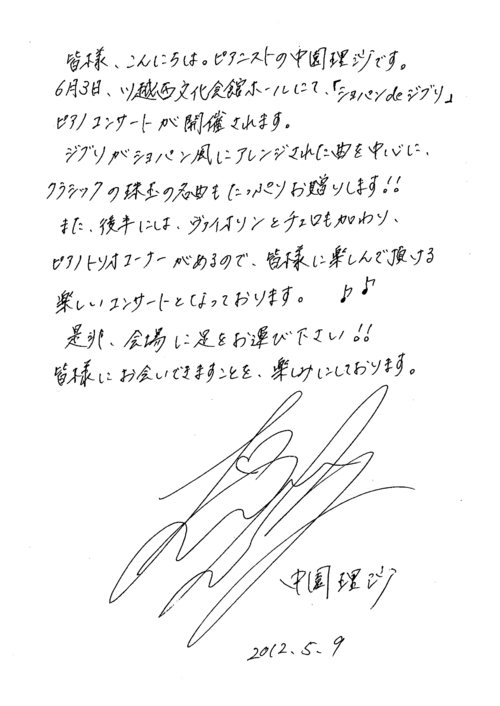 皆様、こんにちは。ピアニストの中園理沙です。
6月3日、川越西文化会館ホールにて、「ショパンdeジブリ」
ピアノコンサートが開催されます。
ジブリがショパン風にアレンジされた曲を中心に、
クラシックの珠玉の名曲もたっぷりお贈りします!!
また、後半には、ヴァイオリンとチェロも加わり、
ピアノトリオコーナーがあるので、皆様に楽しんで頂ける
楽しいコンサートとなっております。 ♪♪
是非、会場に足をお運び下さい!!
皆様にお会いできますことを、楽しみにしております。
中園理沙
2012.5.9